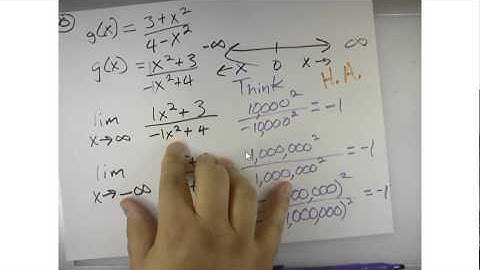 g(x) = 3+x² / 4-x²
-∞ ∞
g(x) = 1x²+3 / -1x²+4
← x 0 x →
Think H.A.
lim x→∞ 1x²+3 / -1x²+4
10,000² / -10,000² = -1
1,000,000² / 1,000,000² = -1
lim x→-∞
000,000)² / 1,000,000)² = -1